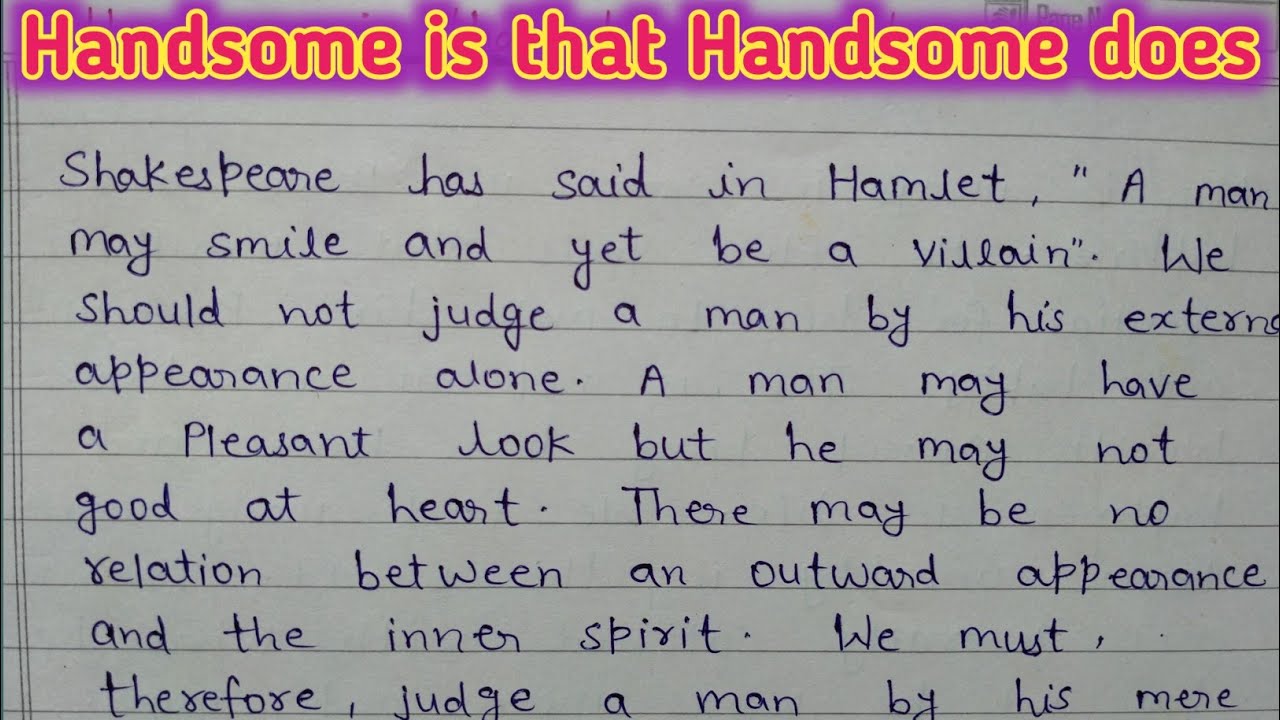 Handsome is that Handsome does
Shakespeare has said in Hamlet, " A man
may smile and yet be a villain". We
should not judge a man by his externa
appearance alone. A man may have
a Pleasant look but he may not
good at heart. There may be no
relation between an outward appearance
and the inner spirit. We must,
therefore, judge a man by his mere